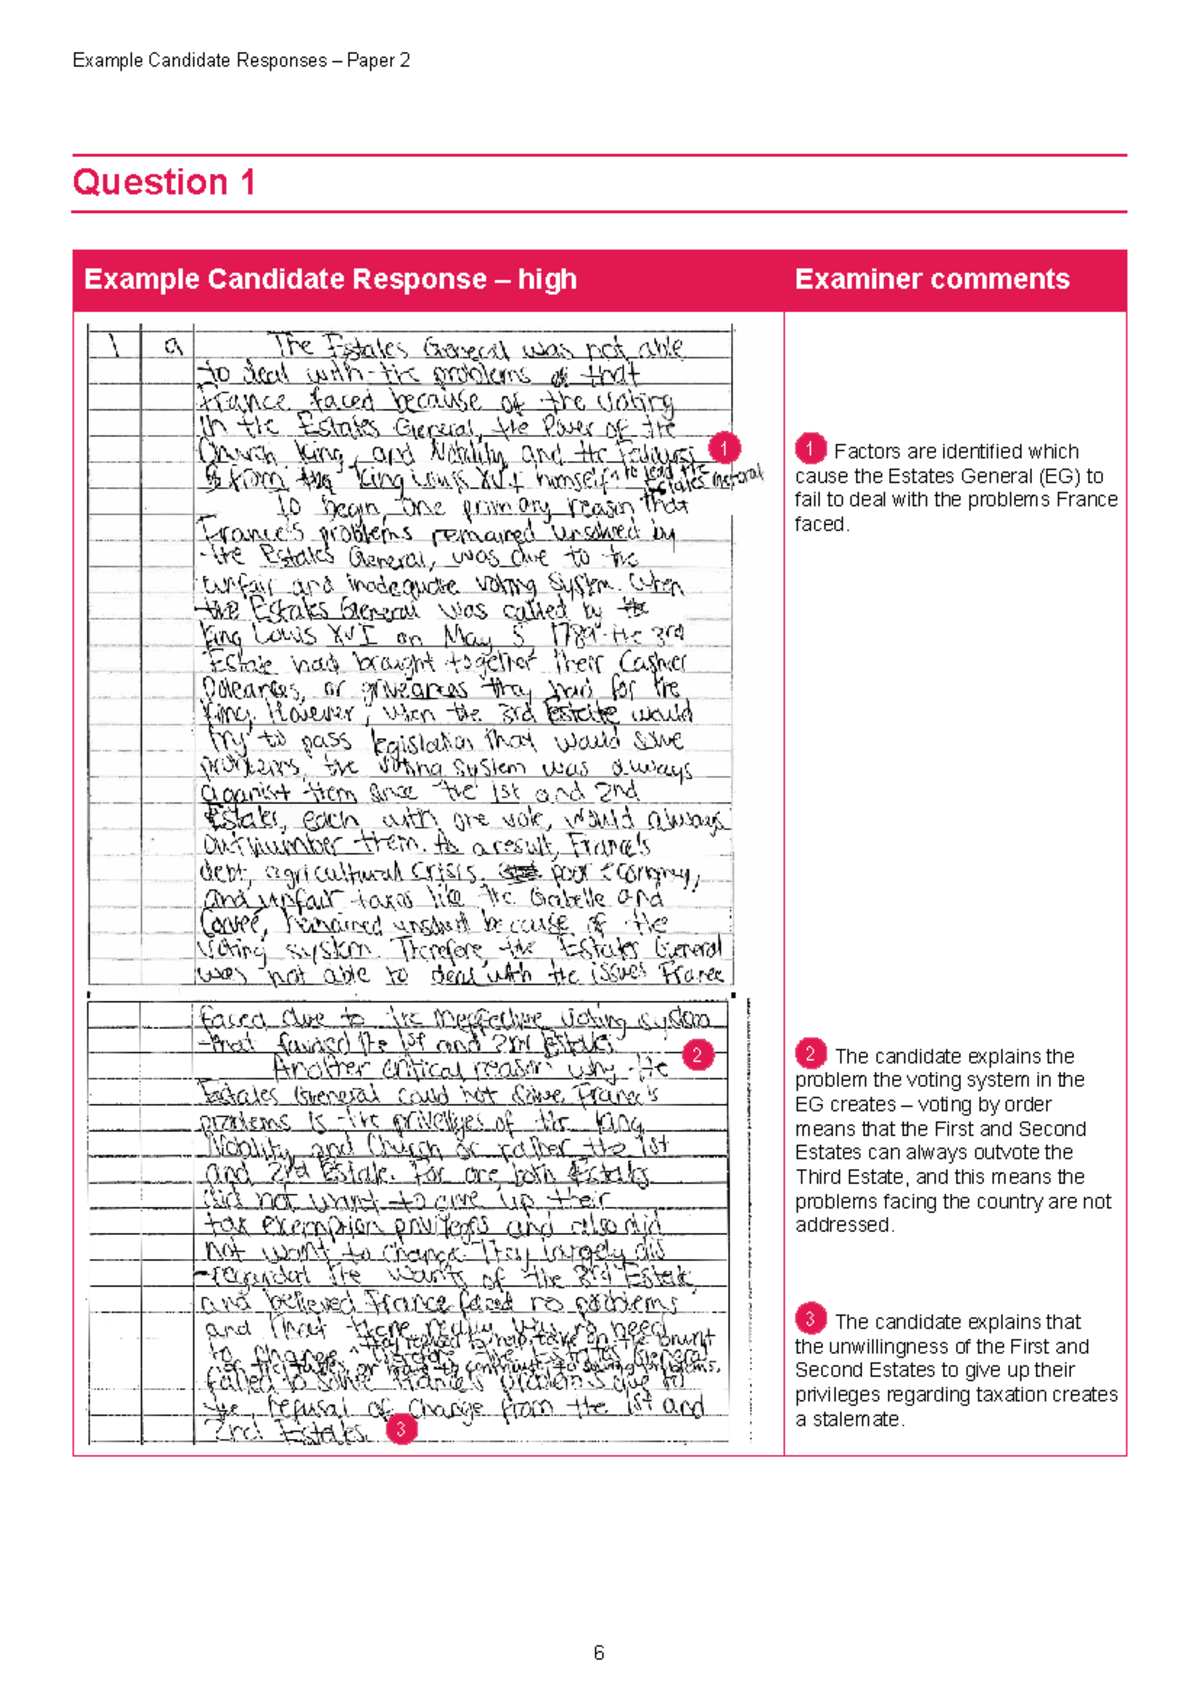 Example Candidate Responses – Paper 2
Question 1
Example Candidate Response – high
Examiner comments
1 a The Estates General was not able
to deal with the problems that
France faced because of the voting
in the Estates General, the Power of the
Church King, and Nobility and the Failures 1
from the King Louis XVI himself to lead the Estates General
To begin, one primary reason that
France's problems remained unsolved by
the Estates General, was due to the
unfair and inadequate voting system. When
the Estates General was called by the
King Louis XVI on May 5 1789 the 3rd
Estate had brought together their Cashier
Doleances, or grievances they had for the
King. However, when the 3rd Estate would
try to pass legislation that would solve
problems, the voting system was always
against them since the 1st and 2nd
Estates, each with one vote, would always
outnumber them. As a result, France's
debt, agricultural crisis, poor economy,
and unfair taxes like the Gabelle and
Corvee, remained unsolved because of the
voting system. Therefore, the Estates General
was not able to deal with the issues France
faced due to the ineffective voting system
that favored the 1st and 2nd Estates. 2
Another critical reason why the
Estates General could not solve France's
problems is the privelliges of the King,
Nobility and Church or rather the 1st
and 2nd Estate. For one, both Estates
did not want to give up their
tax exemption privileges and also did
not want to change. They largely did
regarded the wants of the 3rd Estate
and believed France faced no problems
and that there really was no need
to change. They refused to help take on the brunt
of the taxes or to contribute to solving problems.
Therefore the Estates General
failed to solve France's problems due to
the refusal of change from the 1st and
2nd Estates. 3
1 Factors are identified which
cause the Estates General (EG) to
fail to deal with the problems France
faced.
2 The candidate explains the
problem the voting system in the
EG creates – voting by order
means that the First and Second
Estates can always outvote the
Third Estate, and this means the
problems facing the country are not
addressed.
3 The candidate explains that
the unwillingness of the First and
Second Estates to give up their
privileges regarding taxation creates
a stalemate.
6